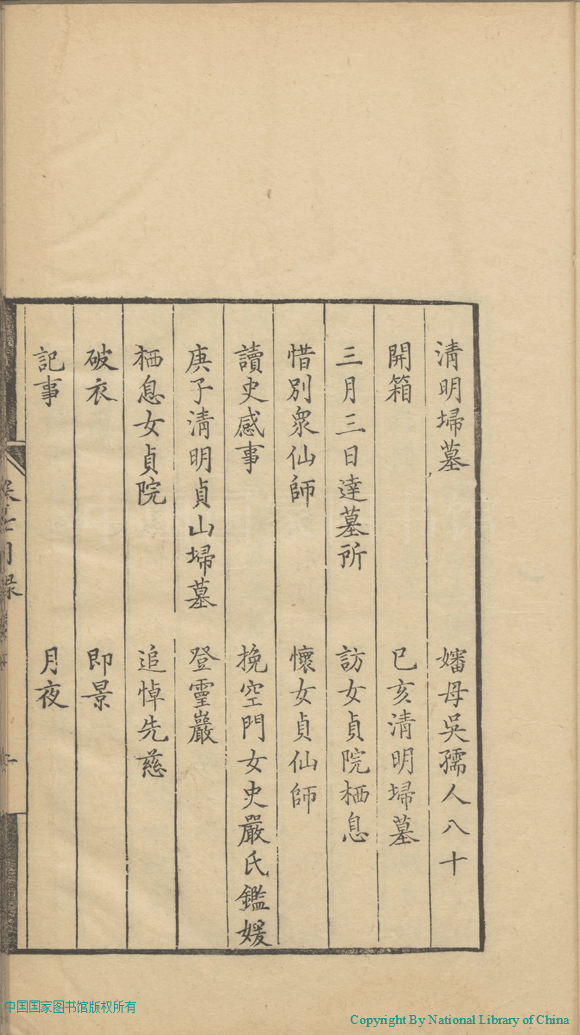 清明埽墓　嬸母吳孺人八十
開箱　己亥清明埽墓
三月三日達墓所　訪女貞院栖息
惜別衆仙師　懷女貞仙師
讀史感事　挽空門女史嚴氏鑑媛
庚子清明貞山埽墓　登靈巖
栖息女貞院　追悼先慈
破衣　即景
記事　月夜
中国国家图书馆版权所有
Copyright By National Library of China